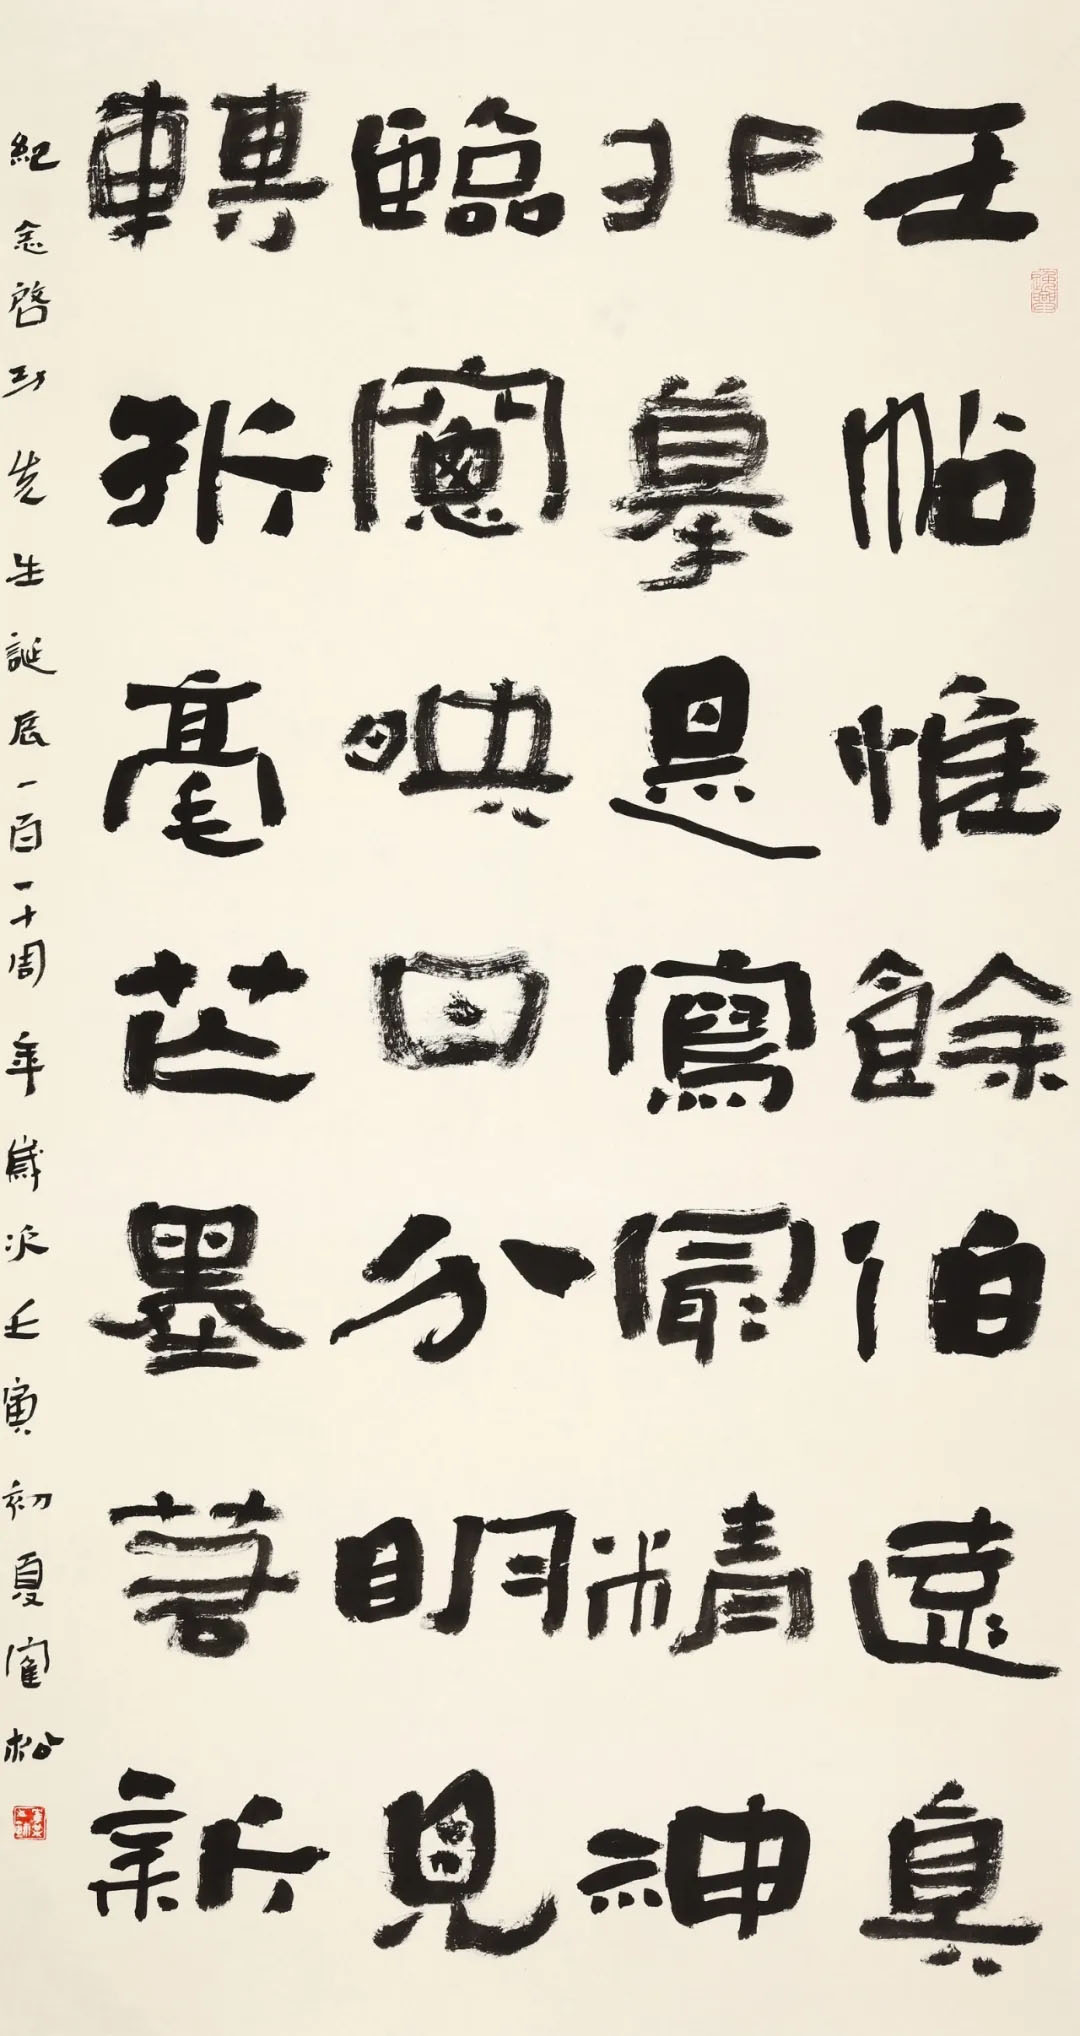 王帖惟餘伯遠真
非摹是寫最精神
臨窻映日分明見
轉折毫芒墨若新
紀念啓功先生誕辰一百一十周年歲次壬寅初夏寉松